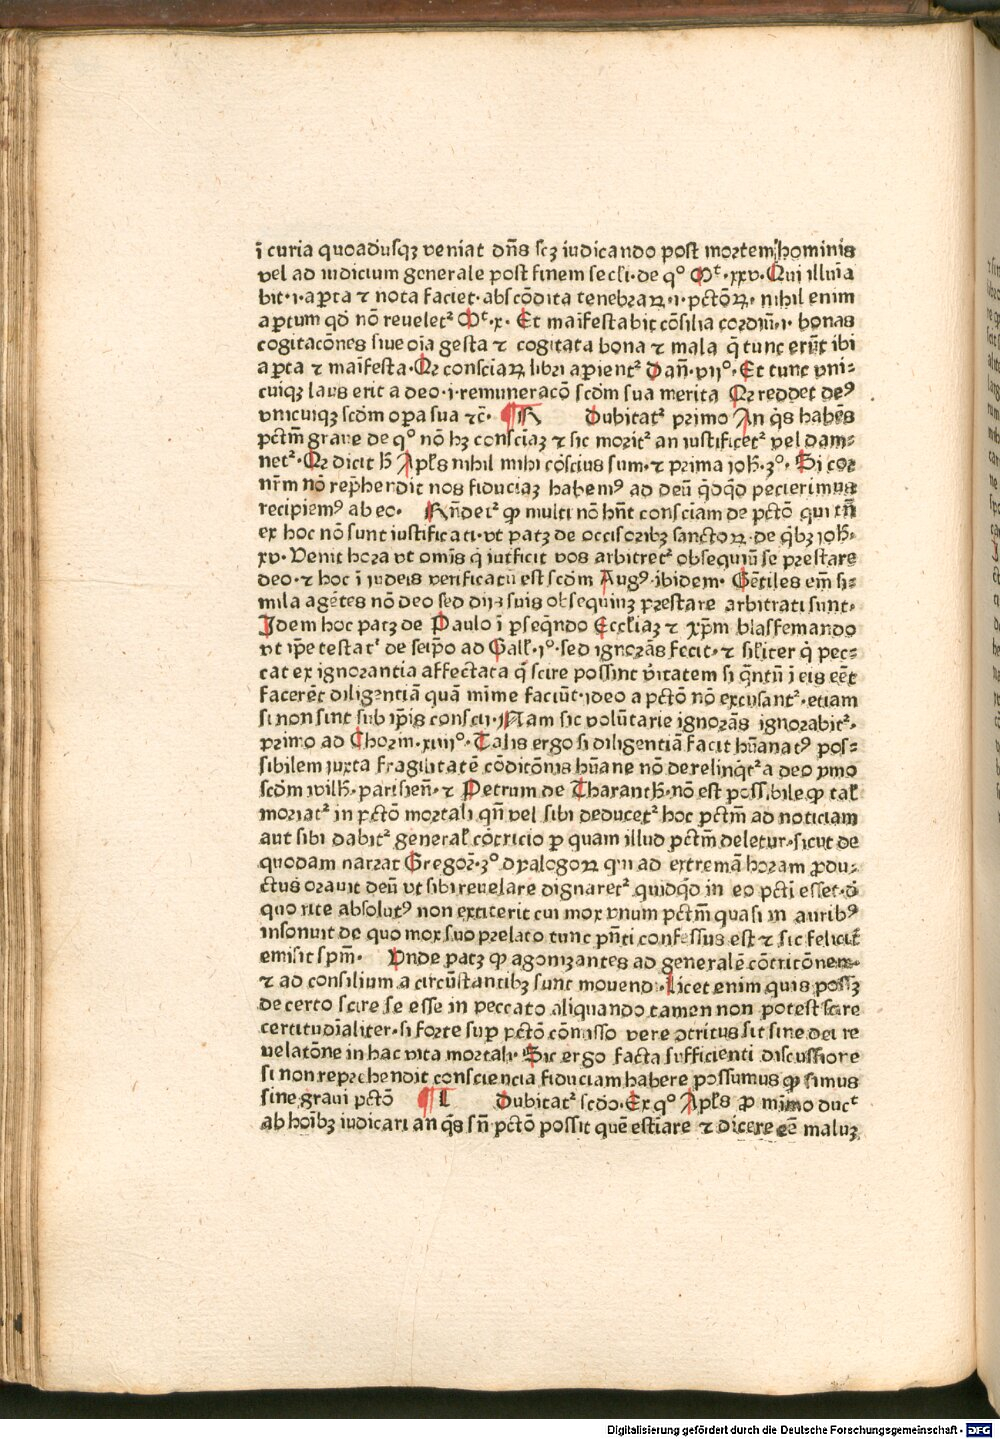 ĩ curia quoadusqꝫ veniat dñs scꝫ iudicando post mortem hominis
vel ad iudicium generale post finem secli·de q° Mᵗ·xxv·Qui illuīa
bit·i·aꝑta ⁊ nota faciet·abscōdita tenebraꝝ·i·pctōꝝ·nihil enim
aꝑtum qđ nō reveletᷣ Mᵗ·x·Et maīfestabit cōsilia cordiū·i·bonas
cogitacōnes siue oīa gesta ⁊ cogitata bona ⁊ mala q̄ tunc erūt ibi
aꝑta ⁊ maīfesta·Qꝛ consciaꝝ libri aꝑientᷣ Dañ·vij°·Et tunc vni-
cuiqꝫ laus erit a deo·i·remuneracō scđm sua merita Qꝛ reddet deꝰ
vnicuiqꝫ scđm oꝑa sua ⁊c̄· ¶ K Dubitatᷣ primo An q̄s habēs
pctm̄ graue de q° nō hꝫ consciaꝫ ⁊ sic moritᷣ an iustificetᷣ vel dam-
netᷣ·Qꝛ dicit h̄ Apl̄s nihil mihi cōscius sum·⁊ prima ioh̄·3°·Si cor
nr̄m nō rep̄hendit nos fiduciaꝫ habemꝰ ad deū q̇dq̇d pecierimus
recipiemꝰ ab eo· Rn̄detᷣ ꝙ multi nō hn̄t consciam de pctō qui tn̄
ex hoc nō sunt iustificati·vt patꝫ de occisoribꝫ sanctoꝝ·de q̇bꝫ ioh̄·
xv·Venit hora vt om̄is q̇ iutficit vos arbitretᷣ obsequiū se prestare
deo·⁊ hoc ī iudeis verificatū est scđm Augꝰ·ibidem·Gētiles em̄ si-
mila agētes nō deo sed dijs suis obsequiuꝫ prestare arbitrati sunt·
Idem hoc patꝫ de Paulo ī ꝑseq̄ndo Eccl̄iaꝫ ⁊ xp̄m blasfemando
vt ip̄e testatᷣ de seip̄o ad Gall̄·1°·sed ignorās fecit·⁊ sil̄iter q̇ pec-
cat ex ignorantia affectata q̇ scire possint v̄itatem si q̄ntū ī eis eēt
facerēt diligentiā quā mīme faciūt·ideo a pctō nō excusantᷣ·etiam
si non sint sub ip̄is conscii·Nam sic volūtarie ignorās ignorabitᷣ·
primo ad Chorin·xiiij°·Talis ergo si diligentiā facit hūanatꝰ pos-
sibilem iuxta fragilitatē cōditōnis hūane nō derelinq̇tᷣ a deo ymo
scđm wilh̄·parisien̄·⁊ Petrum de Tharanth̄·nō est possibile ꝙ tal̄
moriatᷣ in pctō mortali qn̄ vel sibi deducetᷣ hoc pctm̄ ad noticiam
aut sibi dabitᷣ general̄ cōtricio ꝑ quam illud pctm̄ deletur·sicut de
quodam narrat Gregor̄·3° dyalogoꝝ qui ad extremā horam ꝑdu-
ctus orauit deū vt sibi reuelare dignaretᷣ quidq̇d in eo pcti esset·d̄
quo rite absolutꝰ non extiterit cui mox vnum pctm̄ quasi in auribꝰ
insonuit de quo mox suo prelato tunc pn̄ti confessus est ⁊ sic felicit̄
emisit sp̄m· Vnde patꝫ ꝙ agonizantes ad generalē cōtritōnem·
⁊ ad consilium a circūstantibꝫ sunt mouendi·Licet enim quis possꝫ
de certo scire se esse in peccato aliquando tamen non potest scire
certitudīaliter·si forte suꝑ pctō cōmisso vere ↄtritus sit sine dei re
uelatōne in hac vita mortali·Sic ergo facta sufficienti discussiore
si non reprehendit consciencia fiduciam habere possumus ꝙ simus
sine graui pctō ¶ L Dubitatᷣ scđo·Ex q° Apl̄s ꝓ mīmo ducᵗ
ab hoībꝫ iudicari an q̄s sn̄ pctō possit quē estīare ⁊ dicere eē maluꝫ
Digitalisierung gefördert durch die Deutsche Forschungsgemeinschaft - DFG